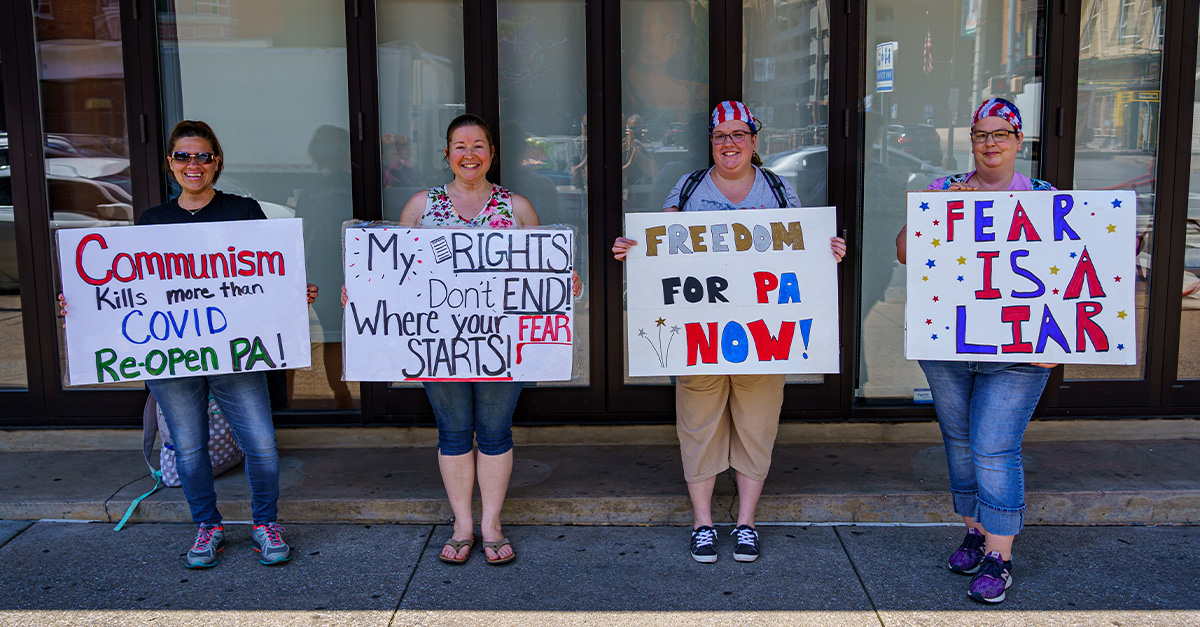 Communism
Kills more than
COVID
Re-Open PA!
My RIGHTS!
Don't END!
Where your FEAR
STARTS!
FREEDOM
FOR PA
NOW!
FEAR
IS A
LIAR